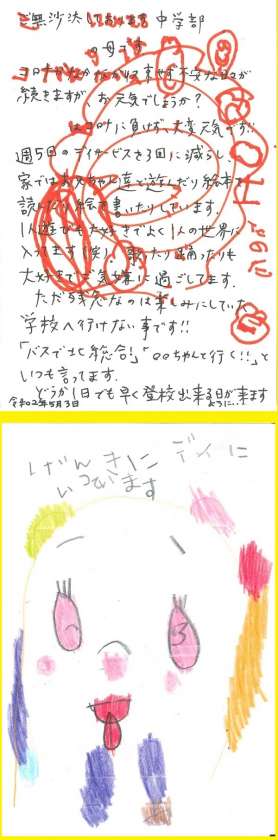 ご無沙汰しております 中学部
の母です
コロナがなかなか収束せず不安な日々が
続きますが、お元気でしょうか?
はコロナに負けず、大変元気です。
週5回のデイサービスを3回に減らし、
家ではお兄ちゃんと遊んだり絵本を
読んだり絵を書いたりしています。
1人遊びも大好きでよく1人の世界に
入ってます(笑)。歌ったり踊ったりも
大好きでご気嫌に過ごしてます。
ただ残念なのは楽しみにしていた
学校へ行けない事です!!
「バスで北総合!」「○○ちゃんと行く!!」と
いつも言ってます。
どうか1日でも早く登校出来る日が来ます
ように…
令和2年5月3日
げんきに デイに
いってます